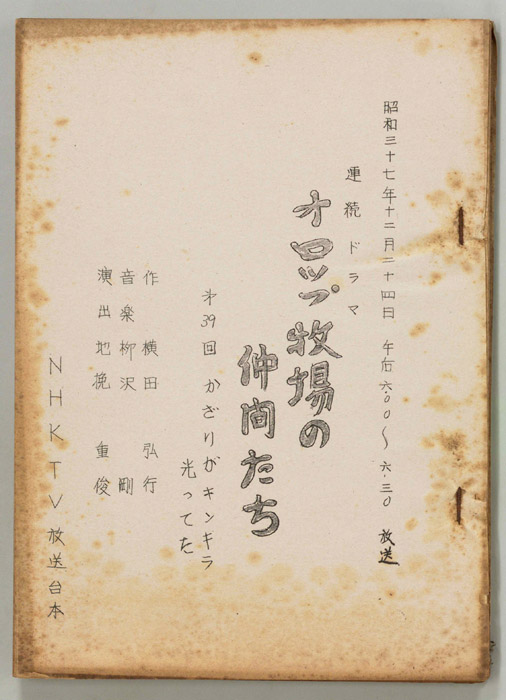 昭和三十七年十二月二十四日 午后六.〇〇〜六.三〇 放送
連続ドラマ
オロップ牧場の
仲間たち
才39回 かざりがキンキラ
光ってた
作 横田 弘行
音楽 柳沢 剛
演出 地挽 重俊
NHKTV放送台本